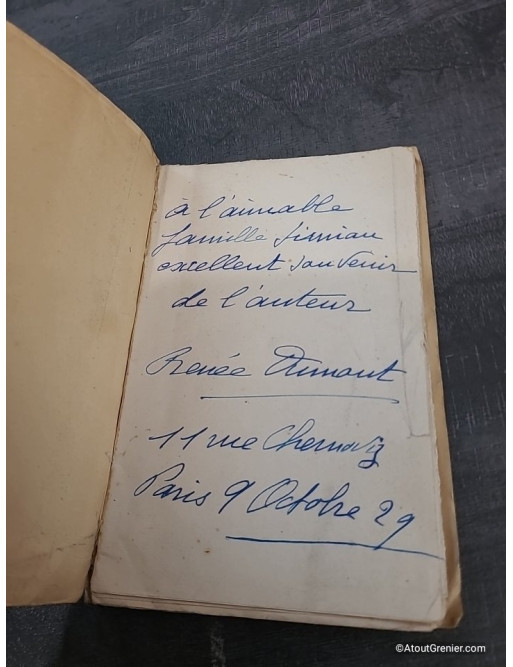 à l'aimable
famille Simian
excellent souvenir
de l'auteur
Renée Dunant
11 rue Chernoviz
Paris 9 Octobre 29
©AtoutGrenier.com